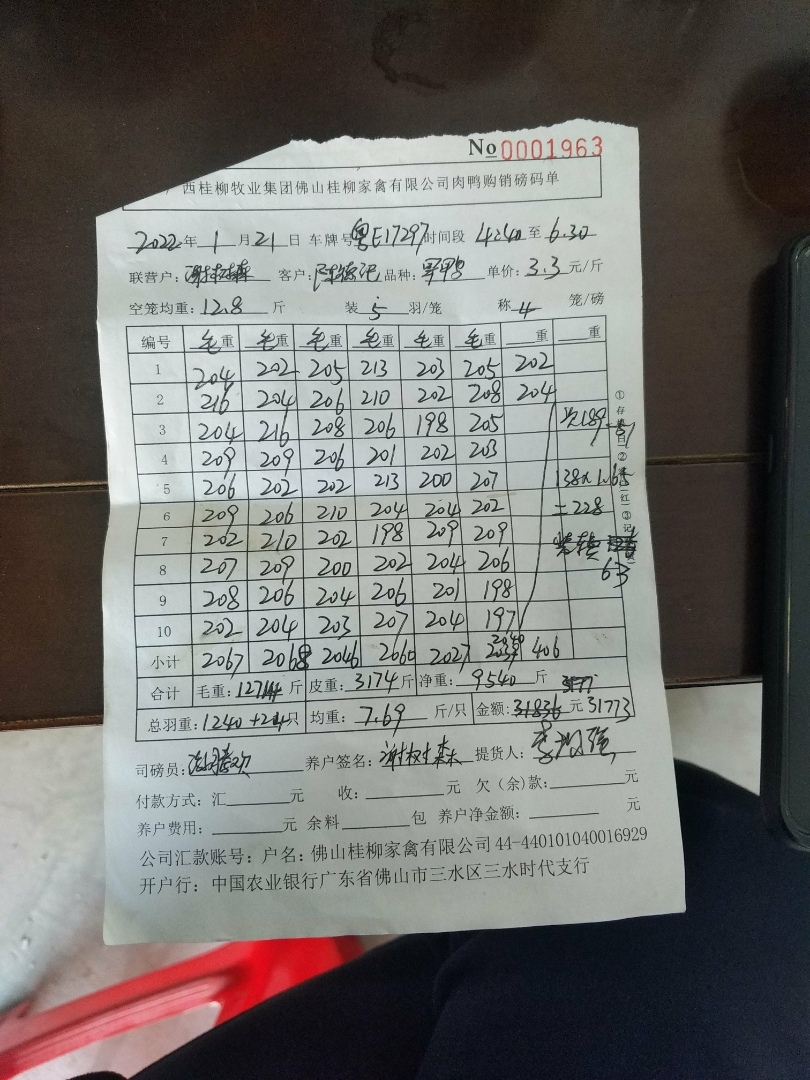 No 0001963
西桂柳牧业集团佛山桂柳家禽有限公司肉鸭购销磅码单
2022年 1 月 21 日 车牌号 粤E17297 时间段 4:40 至 6.30
联营户: 谢树森 客户: 品种: 单价: 3.3 元/斤
空笼均重: 12.8 斤 装 5 羽/笼 称 4 笼/磅
编号 毛重 毛重 毛重 毛重 毛重 毛重 重 重
1 204 202 205 213 203 205 202
2 216 204 206 210 202 208 204
3 204 216 208 206 198 205 次189
4 209 209 206 201 202 203
5 206 202 202 213 200 207 138x1.65
6 209 206 210 204 204 202 =228
7 202 210 202 198 209 209
8 207 209 200 202 204 206 63
9 208 206 204 206 201 198
10 202 204 203 207 204 197
小计 2067 2068 2046 2060 2027 2040 406
合计 毛重: 12714 斤 皮重: 3174 斤 净重: 9540 斤
总羽重: 1240 +2 只 均重: 7.69 斤/只 金额: 31836 元 31773
司磅员: 养户签名: 谢树森 提货人:
付款方式: 汇 元 收: 元 欠 (余)款: 元
养户费用: 元 余料 包 养户净金额: 元
公司汇款账号: 户名: 佛山桂柳家禽有限公司 44-440101040016929
开户行: 中国农业银行广东省佛山市三水区三水时代支行